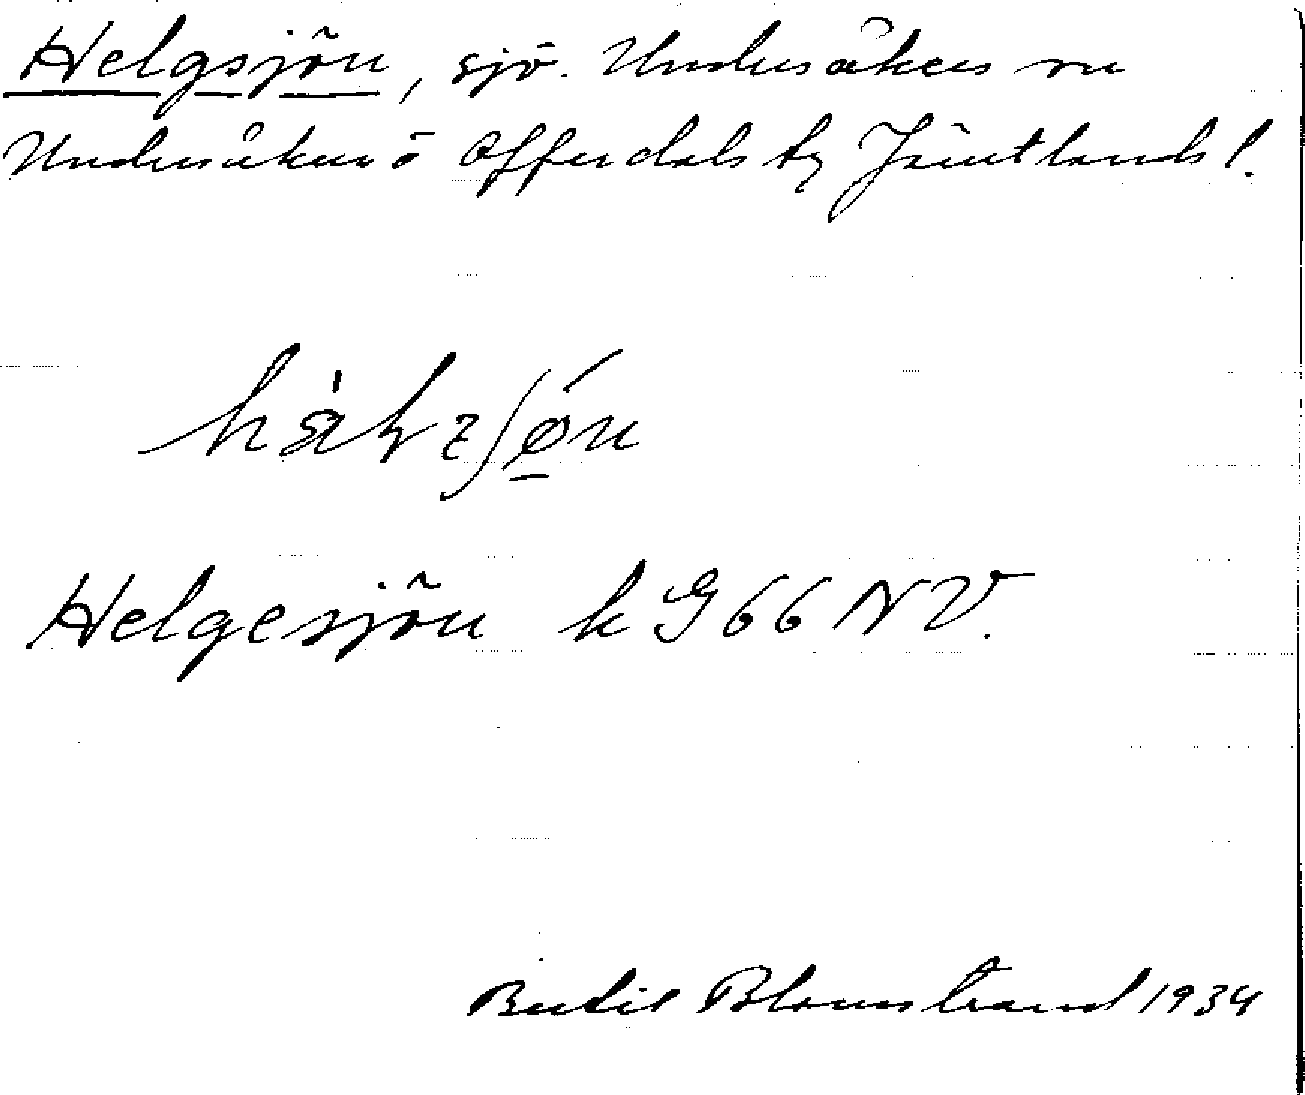 Helgsjön, sjö. Undersåkers sn
Undersåkers o Offerdals tg Jämtlands l.
Helgesjön k G 66 NV.
Bertil Blomstrand 1934